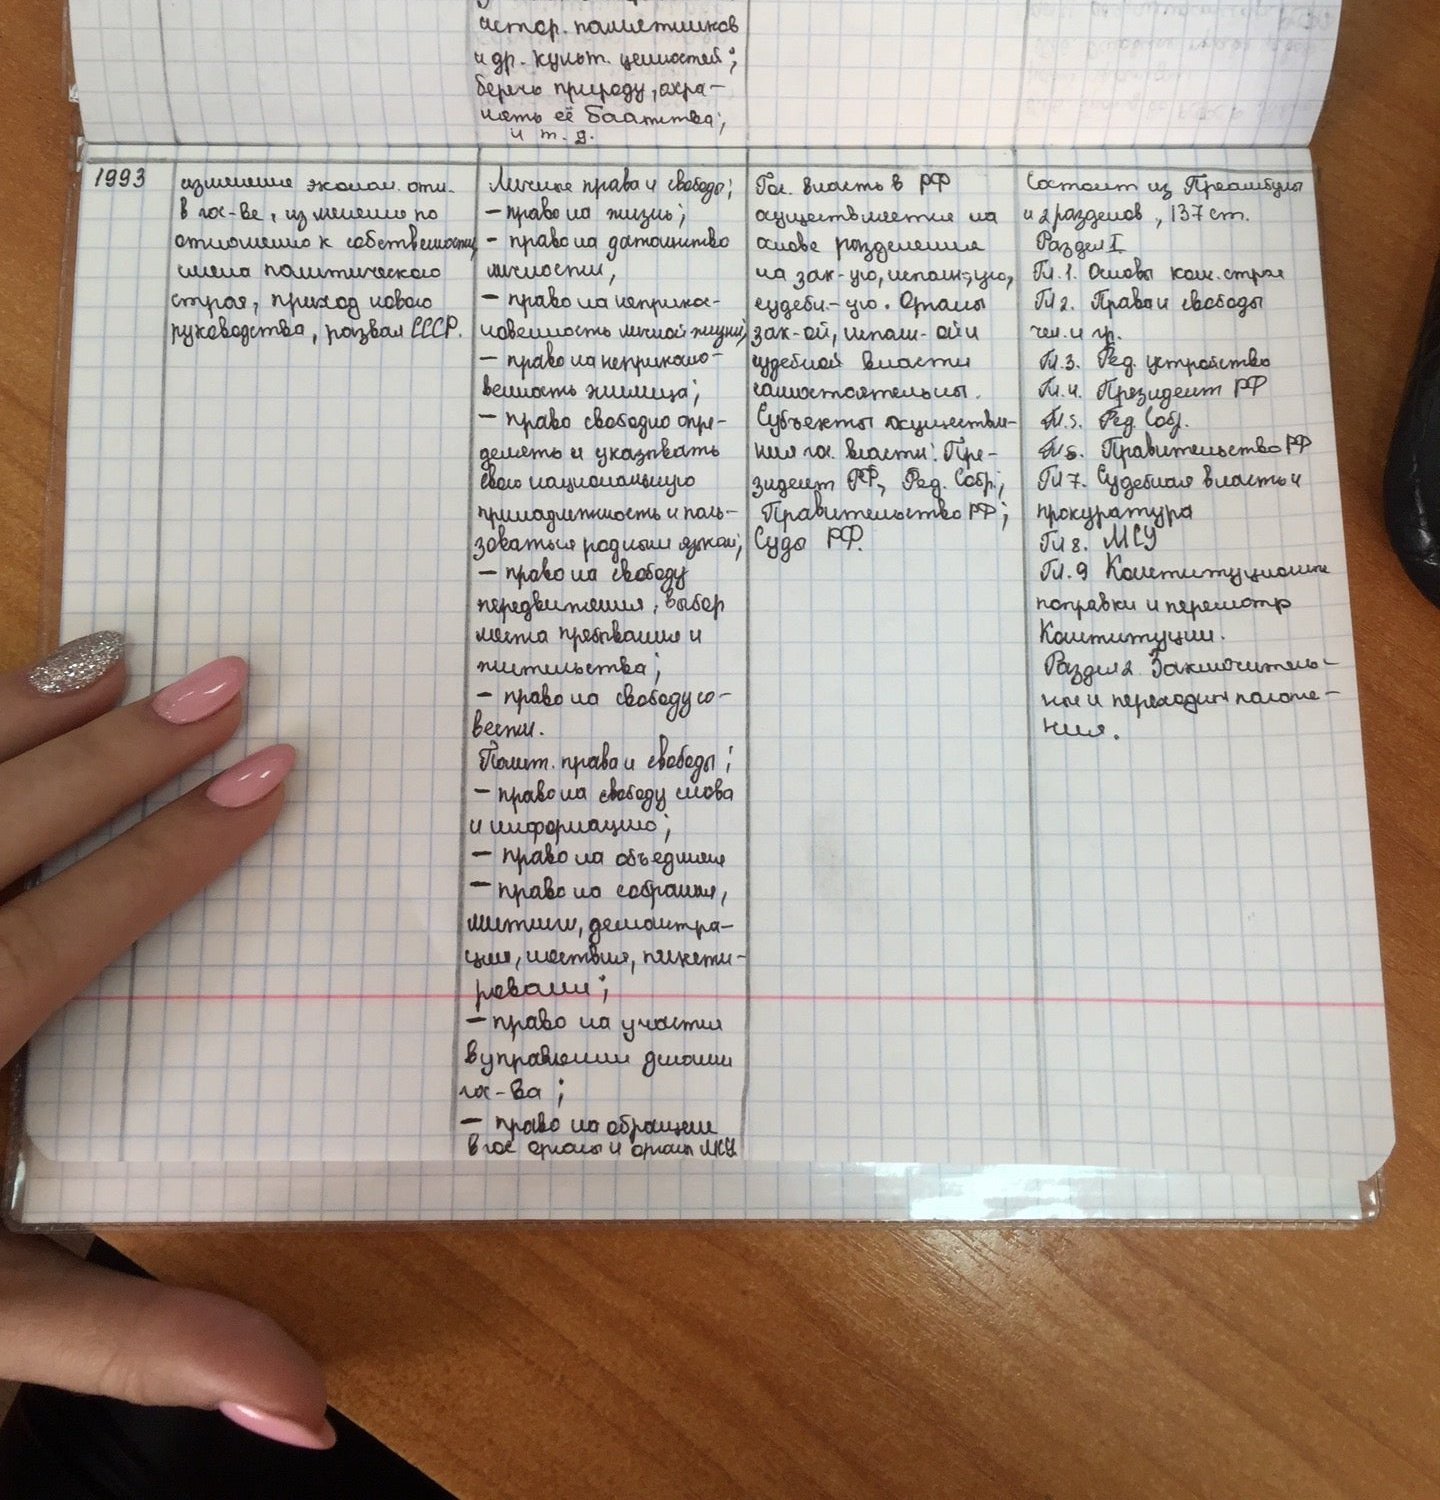 истор. памятников
и др. культ. ценностей;
беречь природу, охра-
нять её богатства;
и т. д.
1993
изменение эконом. отн.
в гос-ве, изменение по
отношению к собственности,
смена политического
строя, приход нового
руководства, развал СССР.
Личные права и свободы;
- право на жизнь;
- право на достоинство
личности;
- право на неприкос-
новенность личной жизни;
- право на неприкосно-
венность жилища;
- право свободно опре-
делять и указывать
свою национальную
принадлежность и поль-
зоваться родным языком;
- право на свободу
передвижения, выбор
места пребывания и
жительства;
- право на свободу со-
вести.
Полит. права и свободы;
- право на свободу слова
и информацию;
- право на объединение
- право на собрания,
митинги, демонстра-
ции, шествия, пикети-
рования;
- право на участие
в управлении делами
гос-ва;
- право на обращение
в гос органы и органы МСУ
Гос. власть в РФ
осуществляется на
основе разделения
на зак-ую, исполн-ую,
судебн-ую. Органы
зак-ой, исполн-ой и
судебной власти
самостоятельны.
Субъекты осуществле-
ния гос. власти: Пре-
зидент РФ, Фед. Собр.;
Правительство РФ;
Суды РФ.
Состоит из Преамбулы
и 2 разделов, 137 ст.
Раздел I.
Гл. 1. Основы кон. строя
Гл 2. Права и свободы
чел. и гр.
Гл. 3. Фед. устройство
Гл. 4. Президент РФ
Гл. 5. Фед. Собр.
Гл 6. Правительство РФ
Гл 7. Судебная власть и
прокуратура
Гл 8. МСУ
Гл. 9 Конституционные
поправки и пересмотр
Конституции.
Раздел 2. Заключитель-
ные и переходные положе-
ния.